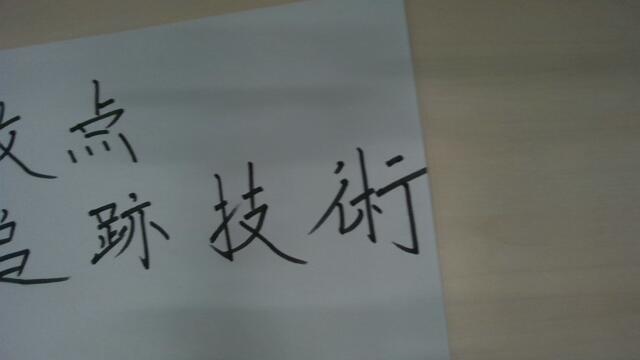 点
追跡技術